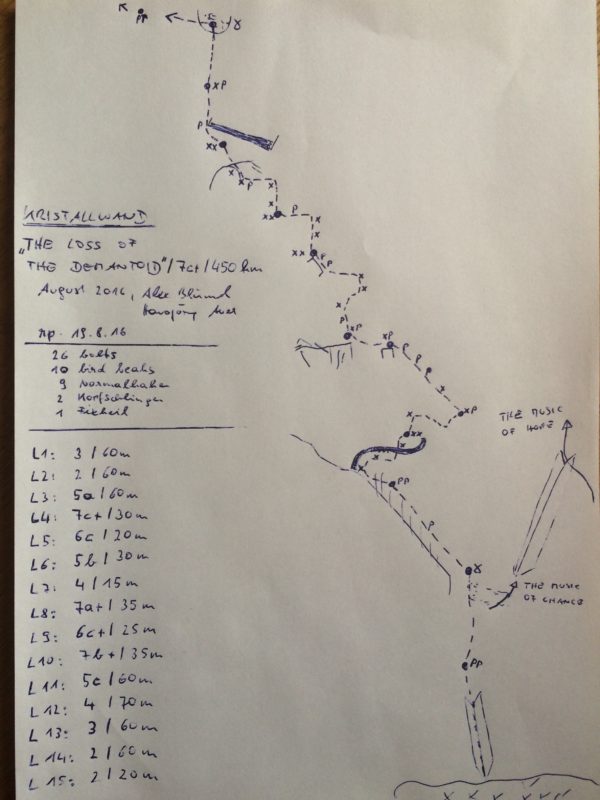 KRISTALLWAND
"THE LOSS OF
THE DEMANTOID"/7c+/450hm
August 2016, Alex Blümel
Hansjörg Auer
rp. 19.8.16
26 bolts
10 bird beaks
9 Normalhaken
2 Kopfschlingen
1 Fixkeil
L1: 3/60m
L2: 2/60m
L3: 5a/60m
L4: 7c+/30m
L5: 6c/20m
L6: 5b/30m
L7: 4/15m
L8: 7a+/35m
L9: 6c+/25m
L10: 7b+/35m
L11: 5c/60m
L12: 4/70m
L13: 3/60m
L14: 2/60m
L15: 2/20m
THE MUSIC
OF HOPE
THE MUSIC
OF CHANCE